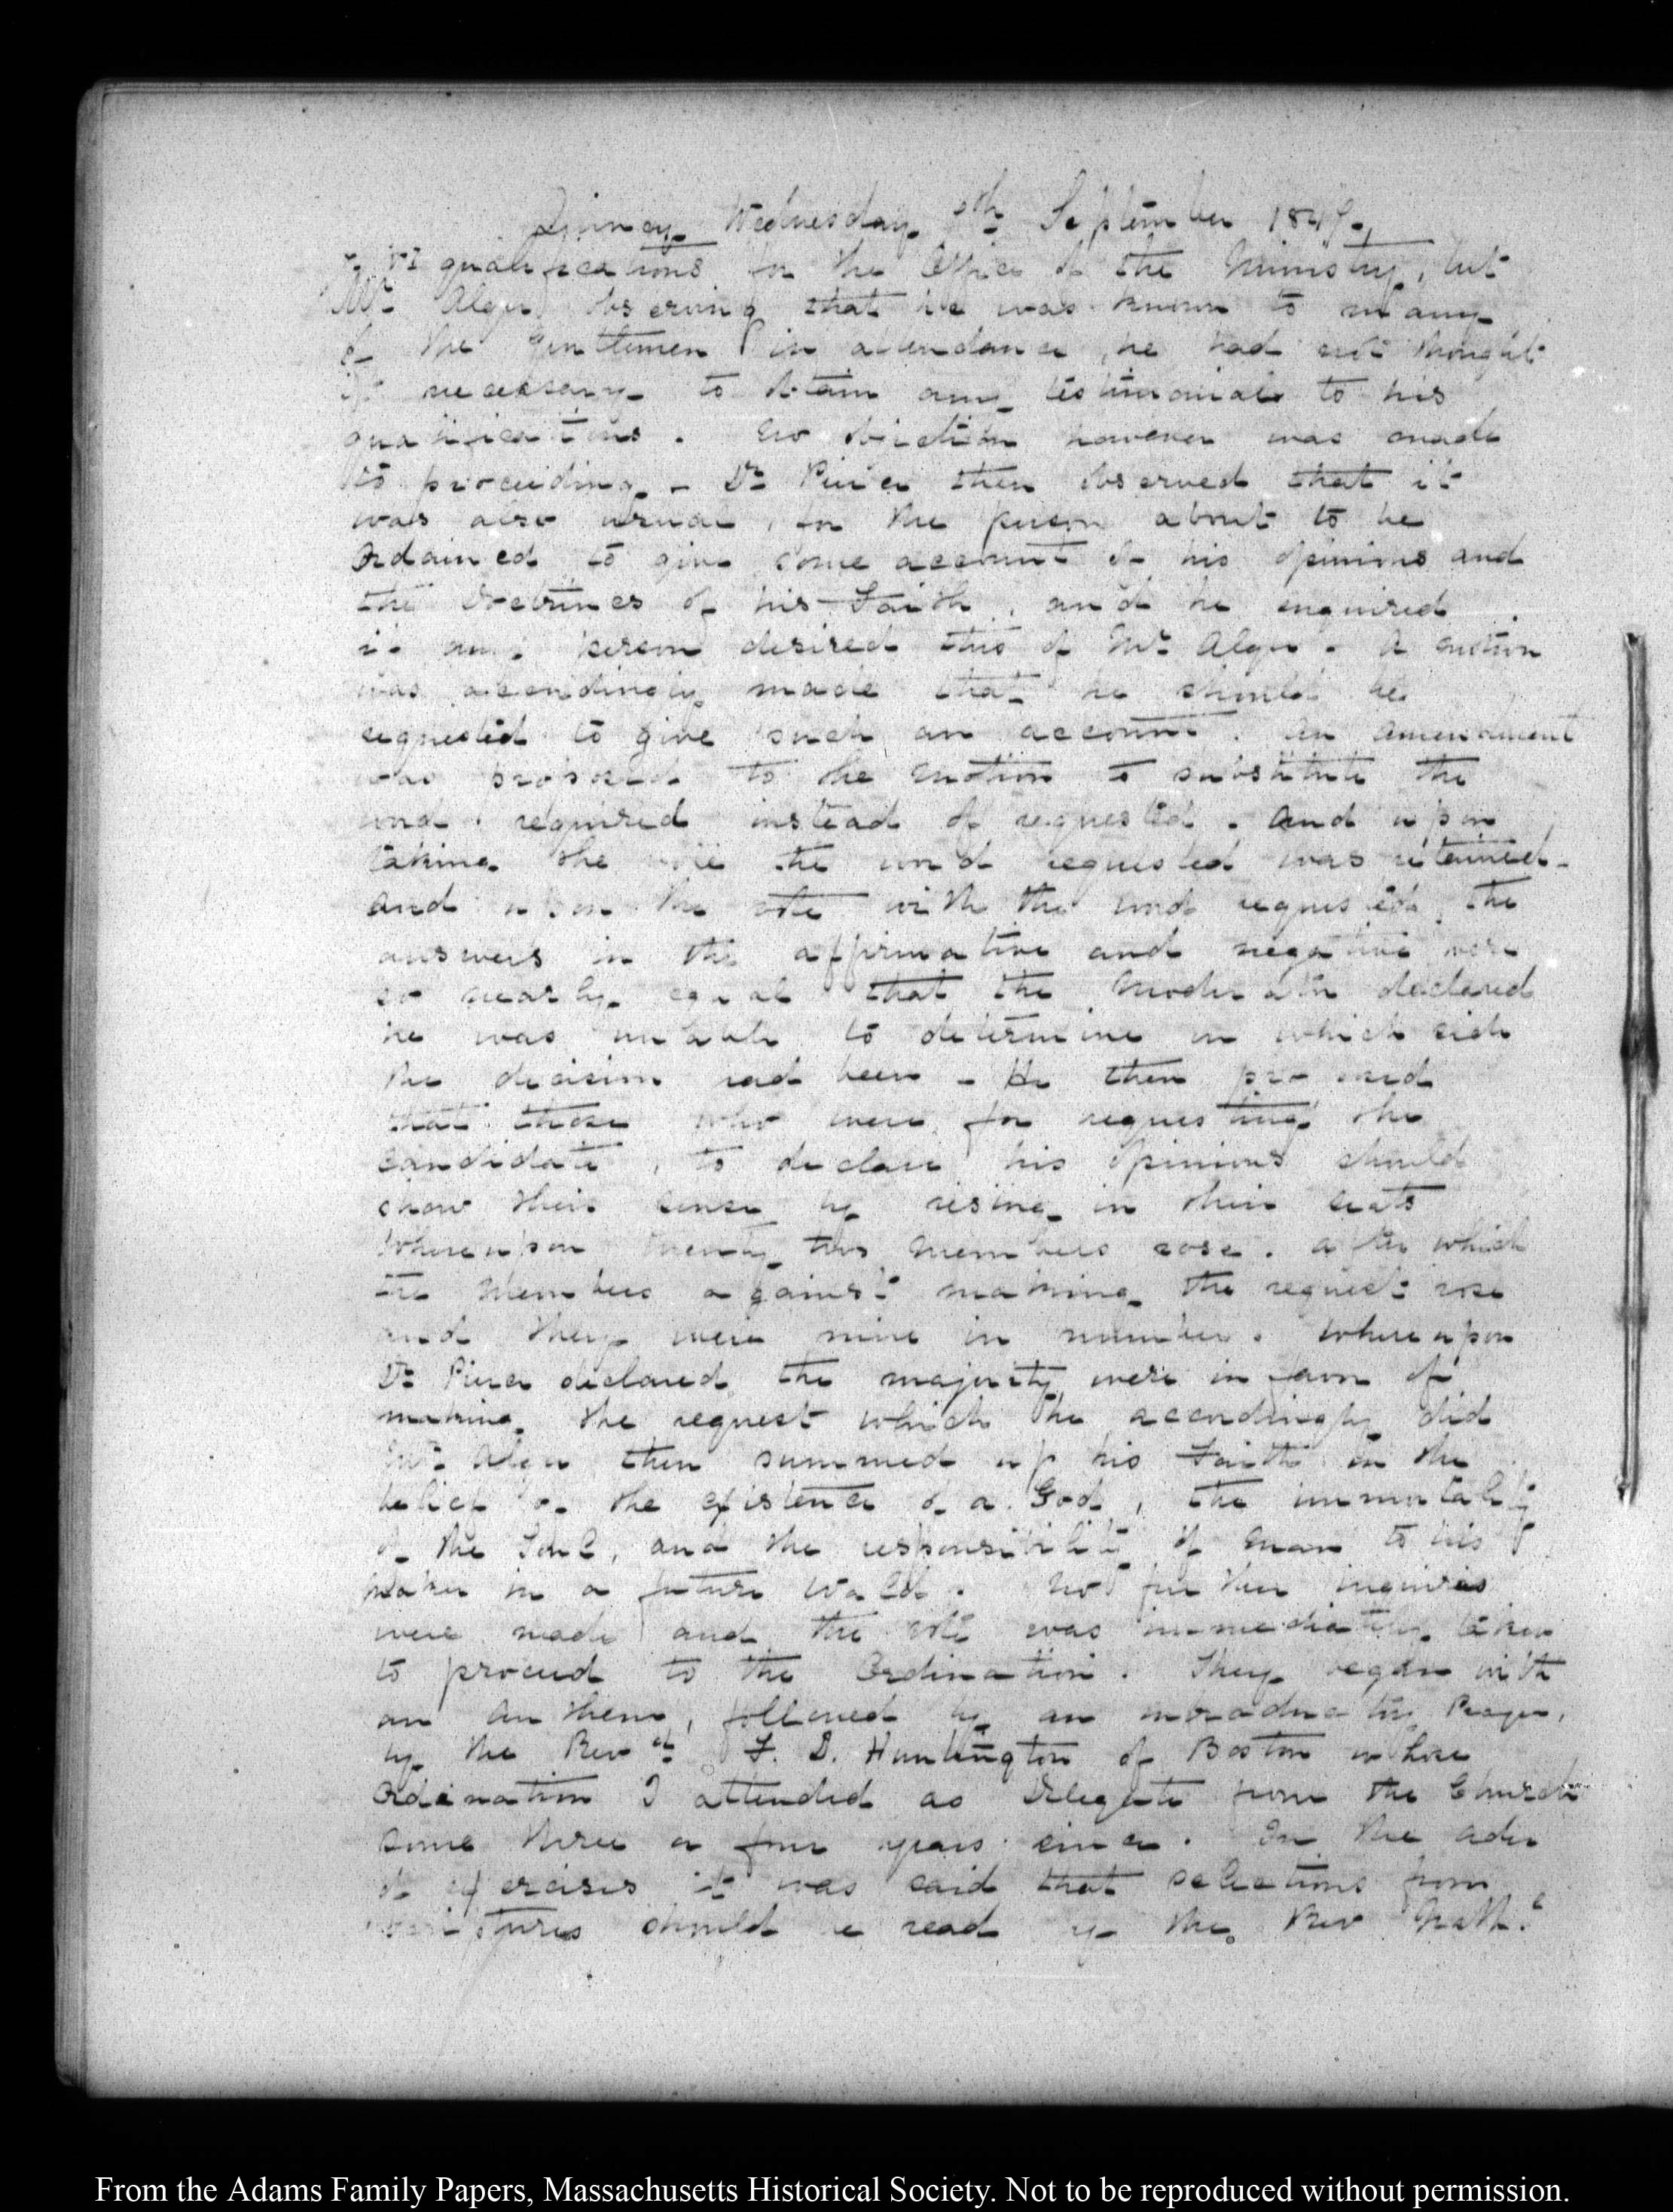 Quincy Wednesday 8th September 1847.
qualifications for the Office of the Ministry, but
Mr Alger observing that he was known to many
of the Gentlemen in attendance, he had not thought
it necessary to obtain any testimonials to his
qualifications. No objection however was made
to proceeding - Dr Pierce then observed that it
was also usual, for the person about to be
Ordained to give some account of his opinions and
the Doctrines of his Faith, and he enquired
if any person desired this of Mr Alger. A motion
was accordingly made that he should be
requested to give such an account. An amendment
was proposed to the motion to substitute the
word required instead of requested. And upon
taking the vote the word requested was retained.
And upon the vote with the word requested, the
answers in the affirmative and negative were
so nearly equal that the Moderator declared
he was unable to determine on which side
the decision had been - He then proposed
that those who were for requesting the
Candidate, to declare his opinions should
show their sense by rising in their seats
Whereupon twenty two Members rose. After which
the Members against making the request rose
and they were nine in number. Whereupon
Dr Pierce declared the majority were in favor of
making the request which he accordingly did
Mr Alger then summed up his Faith in the
belief of the existence of a God, the immortality
of the Soul, and the responsibility of Man to his
Maker in a future World. No further inquiries
were made and the vote was immediately taken
to proceed to the Ordination. They began with
an Anthem, followed by an introductory Prayer,
by the Revd F. D. Huntington of Boston whose
Ordination I attended as Delegate from the Church
some three or four years since. In the order
of exercises it was said that selections from
Scriptures should be read by the Rev Nathl